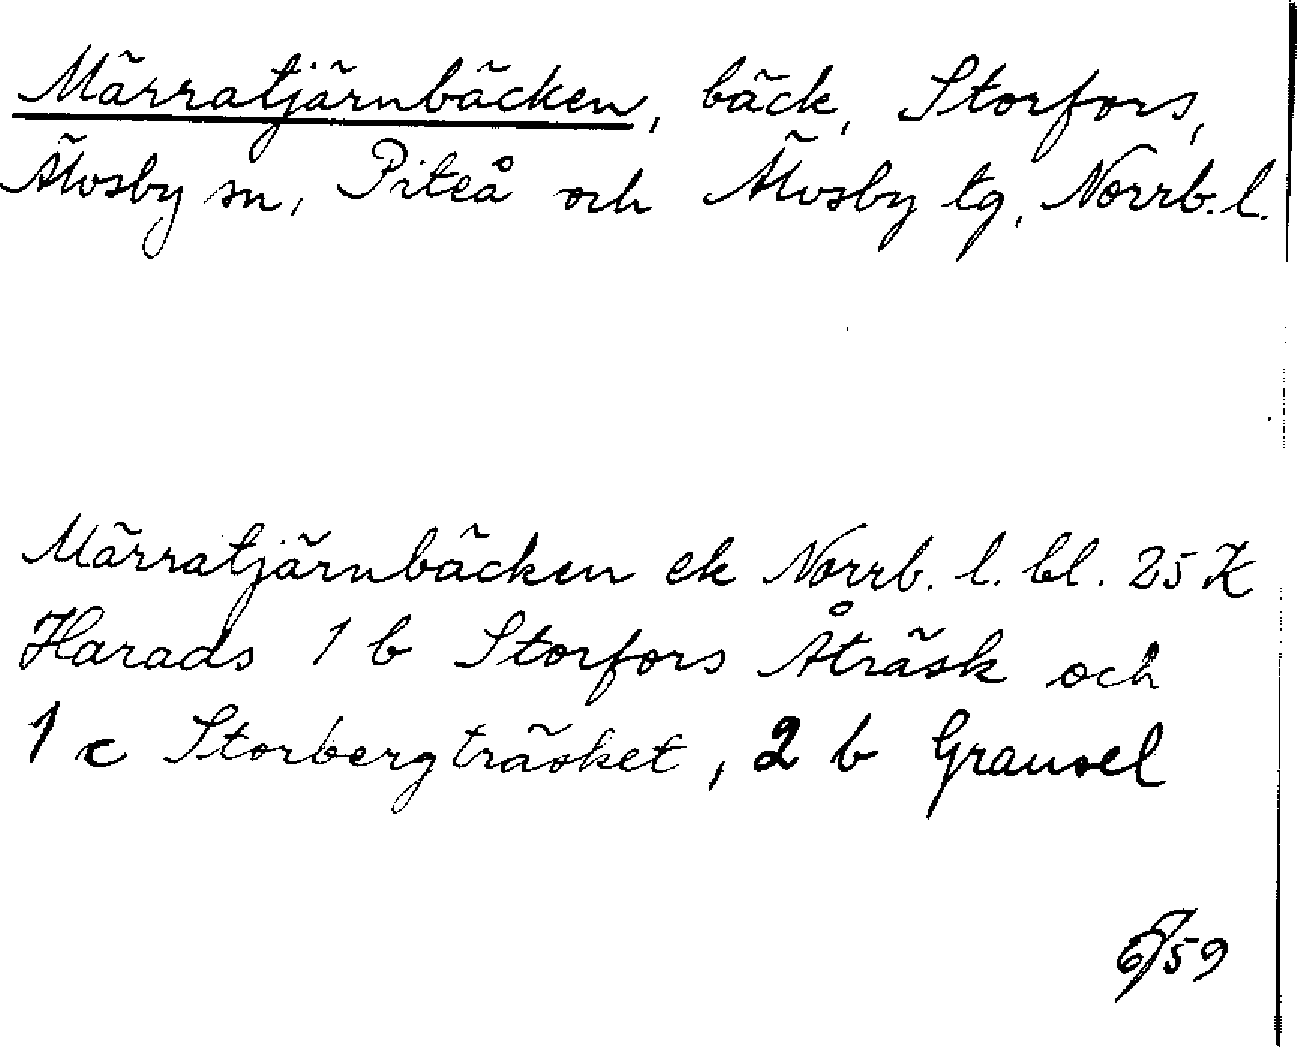 Märratjärnbäcken, bäck, Storfors,
Älvsby sn, Piteå och Älvsby tg, Norrb. l.
Märratjärnbäcken ek Norrb. l. bl. 25 K
Harads 1 b Storfors Åträsk och
1 c Storbergträsket, 2 b Gransel
59